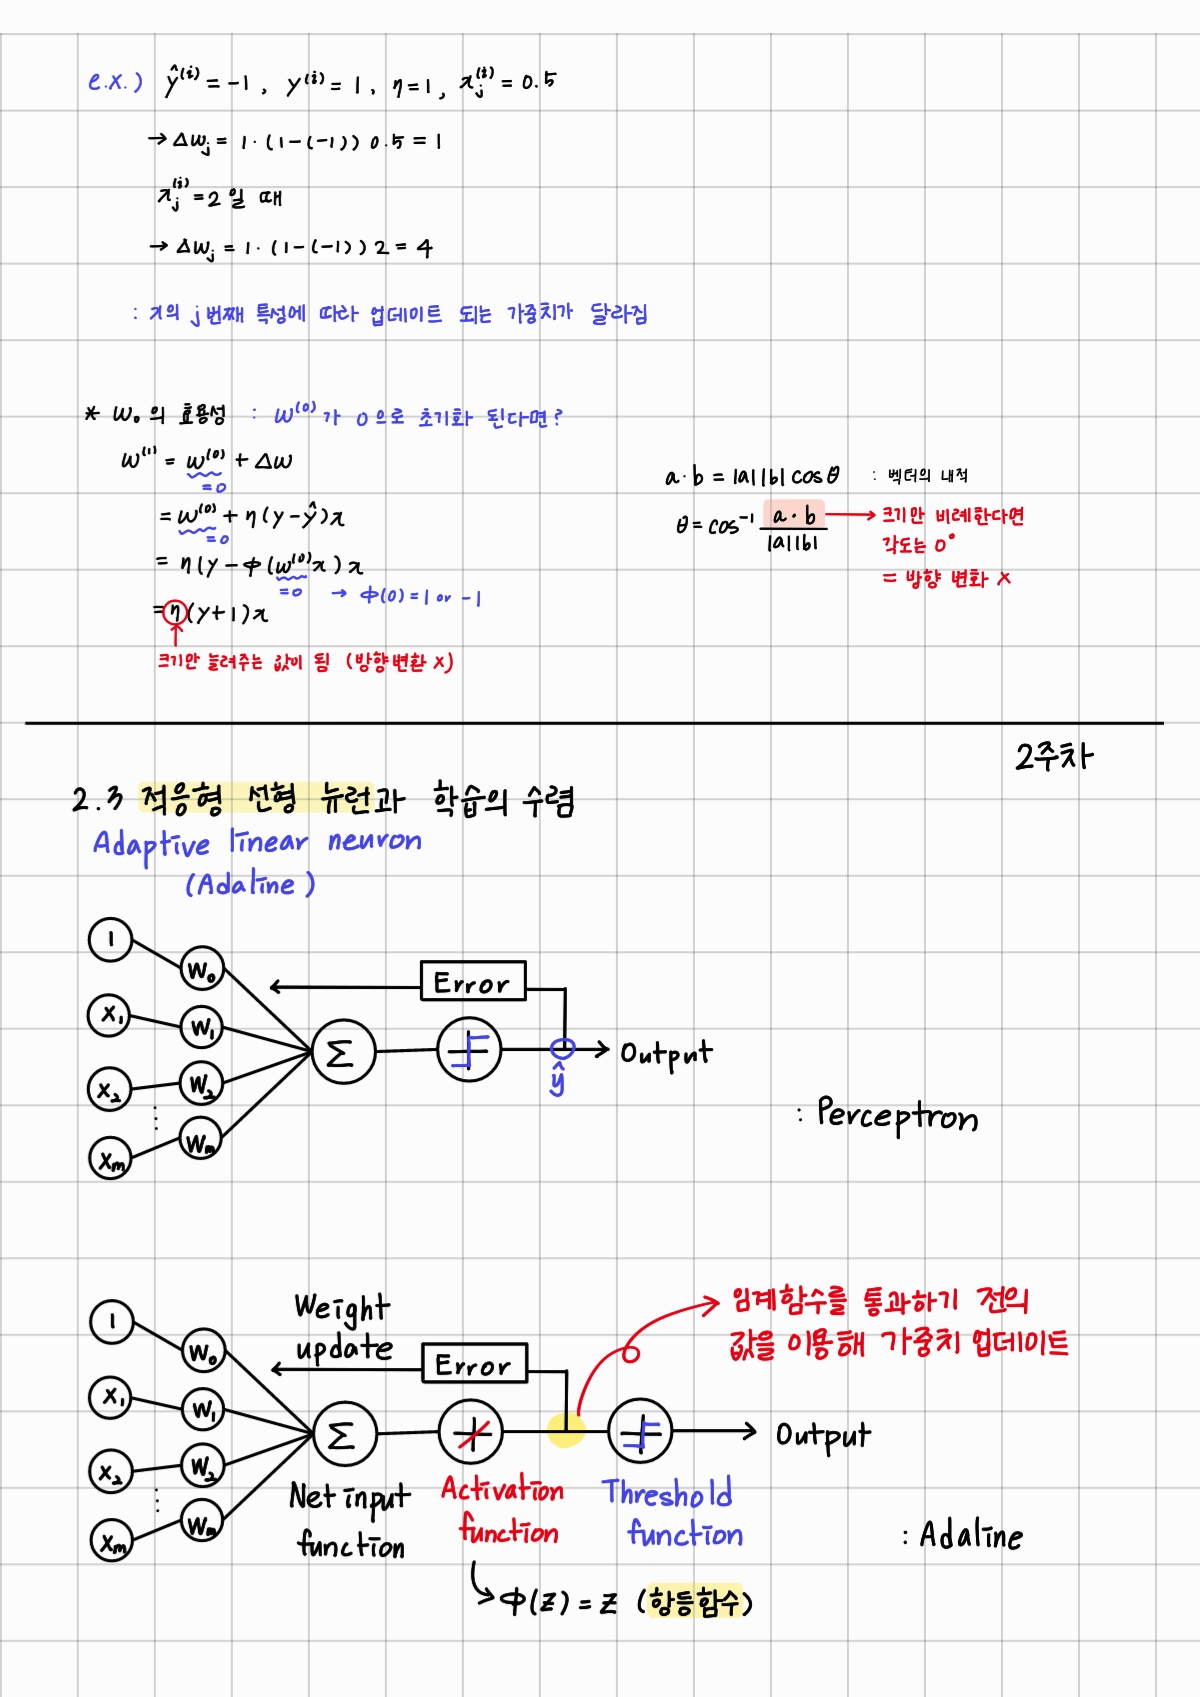 e.x.) ŷ⁽ⁱ⁾ = -1, y⁽ⁱ⁾ = 1, η = 1, xⱼ⁽ⁱ⁾ = 0.5
→ Δwⱼ = 1·(1-(-1)) 0.5 = 1
xⱼ⁽ⁱ⁾ = 2 일 때
→ Δwⱼ = 1·(1-(-1)) 2 = 4
: x의 j번째 특성에 따라 업데이트 되는 가중치가 달라짐
* w₀의 효용성 : w⁽⁰⁾가 0으로 초기화 된다면?
w⁽¹⁾ = w⁽⁰⁾ + Δw
= 0
= w⁽⁰⁾ + η(y-ŷ)x
= 0
= η(y-Φ(w⁽⁰⁾x))x
= 0 → Φ(0) = 1 or -1
= η(y+1)x
크기만 늘려주는 값이 됨 (방향변환 x)
a·b = |a||b| cosθ : 벡터의 내적
θ = cos⁻¹ a·b / |a||b| → 크기만 비례한다면
각도는 0°
= 방향 변화 X
2주차
2.3 적응형 선형 뉴런과 학습의 수렴
Adaptive linear neuron
(Adaline)
1
w₀
x₁
w₁
x₂
w₂
⋮
xₘ
wₘ
Σ
Error
ŷ
Output
: Perceptron
1
w₀
x₁
w₁
x₂
w₂
⋮
xₘ
wₘ
Weight
update
Error
임계함수를 통과하기 전의
값을 이용해 가중치 업데이트
Σ
Output
Net input
function
Activation
function
Threshold
function
: Adaline
Φ(z) = z (항등함수)